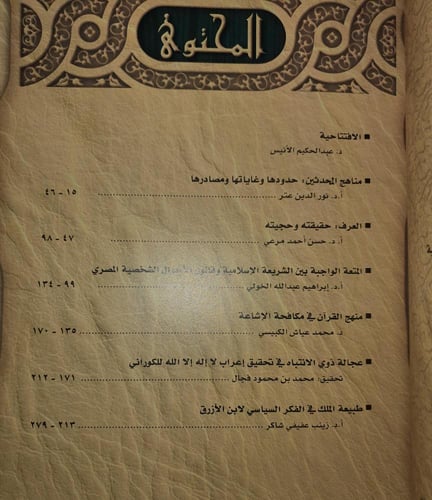 المحتوى
■ الافتتاحية
د. عبدالحكيم الأنيس
■ مناهج المحدثين، حدودها وغاياتها ومصادرها
أ.د. نور الدين عتر ........................ ١٥ - ٤٦
■ العرف، حقيقته وحجيته
أ. د. حسن أحمد مرعي ........................ ٤٧ - ٩٨
■ المتعة الواجبة بين الشريعة الإسلامية وقانون الأحوال الشخصية المصري
أ.د. إبراهيم عبدالله الخولي ........................ ٩٩ - ١٣٤
■ منهج القرآن في مكافحة الإشاعة
د. محمد عياش الكبيسي ........................ ١٣٥ - ١٧٠
■ عجالة ذوي الانتباه في تحقيق إعراب لا إله إلا الله للكوراني
تحقيق: محمد بن محمود فجال ........................ ١٧١ - ٢١٢
■ طبيعة الملك في الفكر السياسي لابن الأزرق
أ.د. زينب عفيفي شاكر ........................ ٢١٣ - ٢٧٩